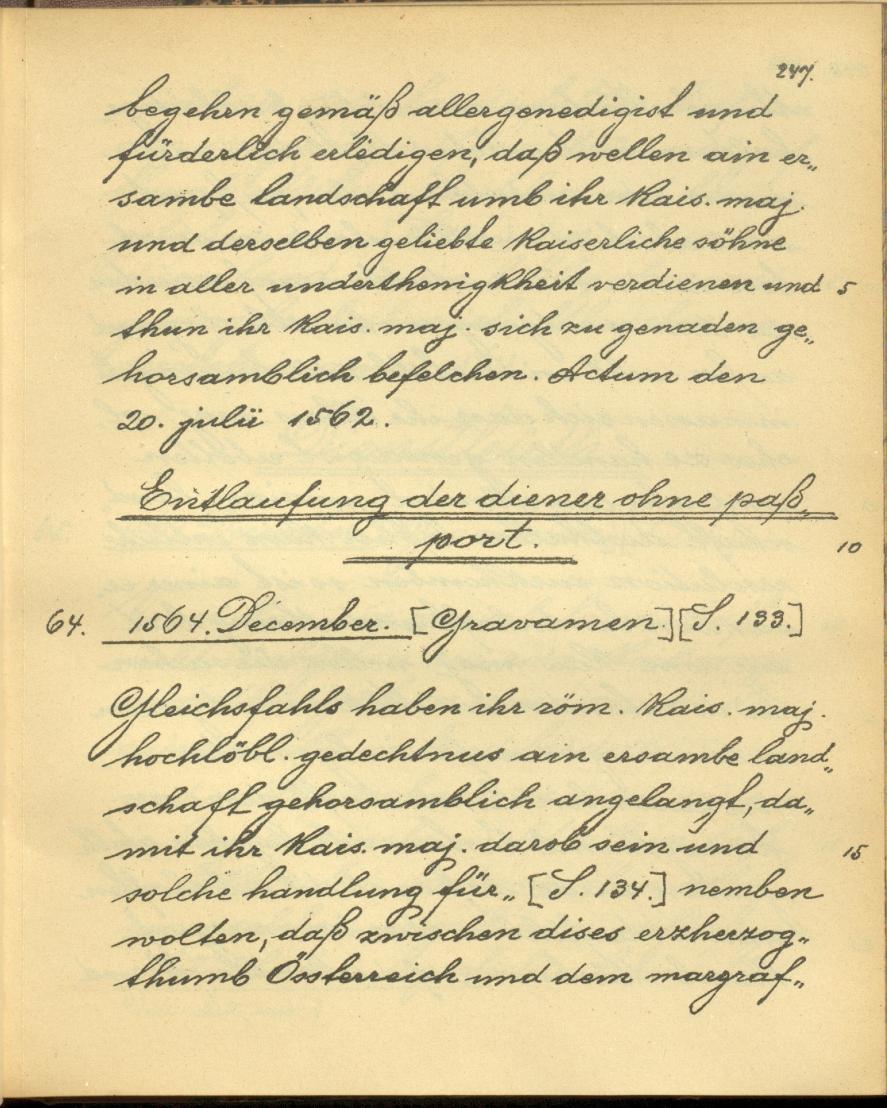 247.
begehrn gemäß allergenedigist und
fürderlich erledigen, daß wellen ain er„
sambe landschaft umb ihr Kais. maj.
und derselben geliebte Kaiserliche söhne
in aller underthenigkheit verdienen und 5
thun ihr Kais. maj. sich zu genaden ge„
horsamblich befelchen. Actum den
20. julii 1562.
Entlaufung der diener ohne paß„
port. 10
64. 1564. December. [Gravamen.] [S. 133.]
Gleichsfahls haben ihr röm. Kais. maj.
hochlöbl. gedechtnus ain ersambe land„
schaft gehorsamblich angelangt, da„
mit ihr Kais. maj. darob sein und 15
solche handlung für„ [S. 134.] nemben
wolten, daß zwischen dises erzherzog„
thumb Össterreich und dem margraf„